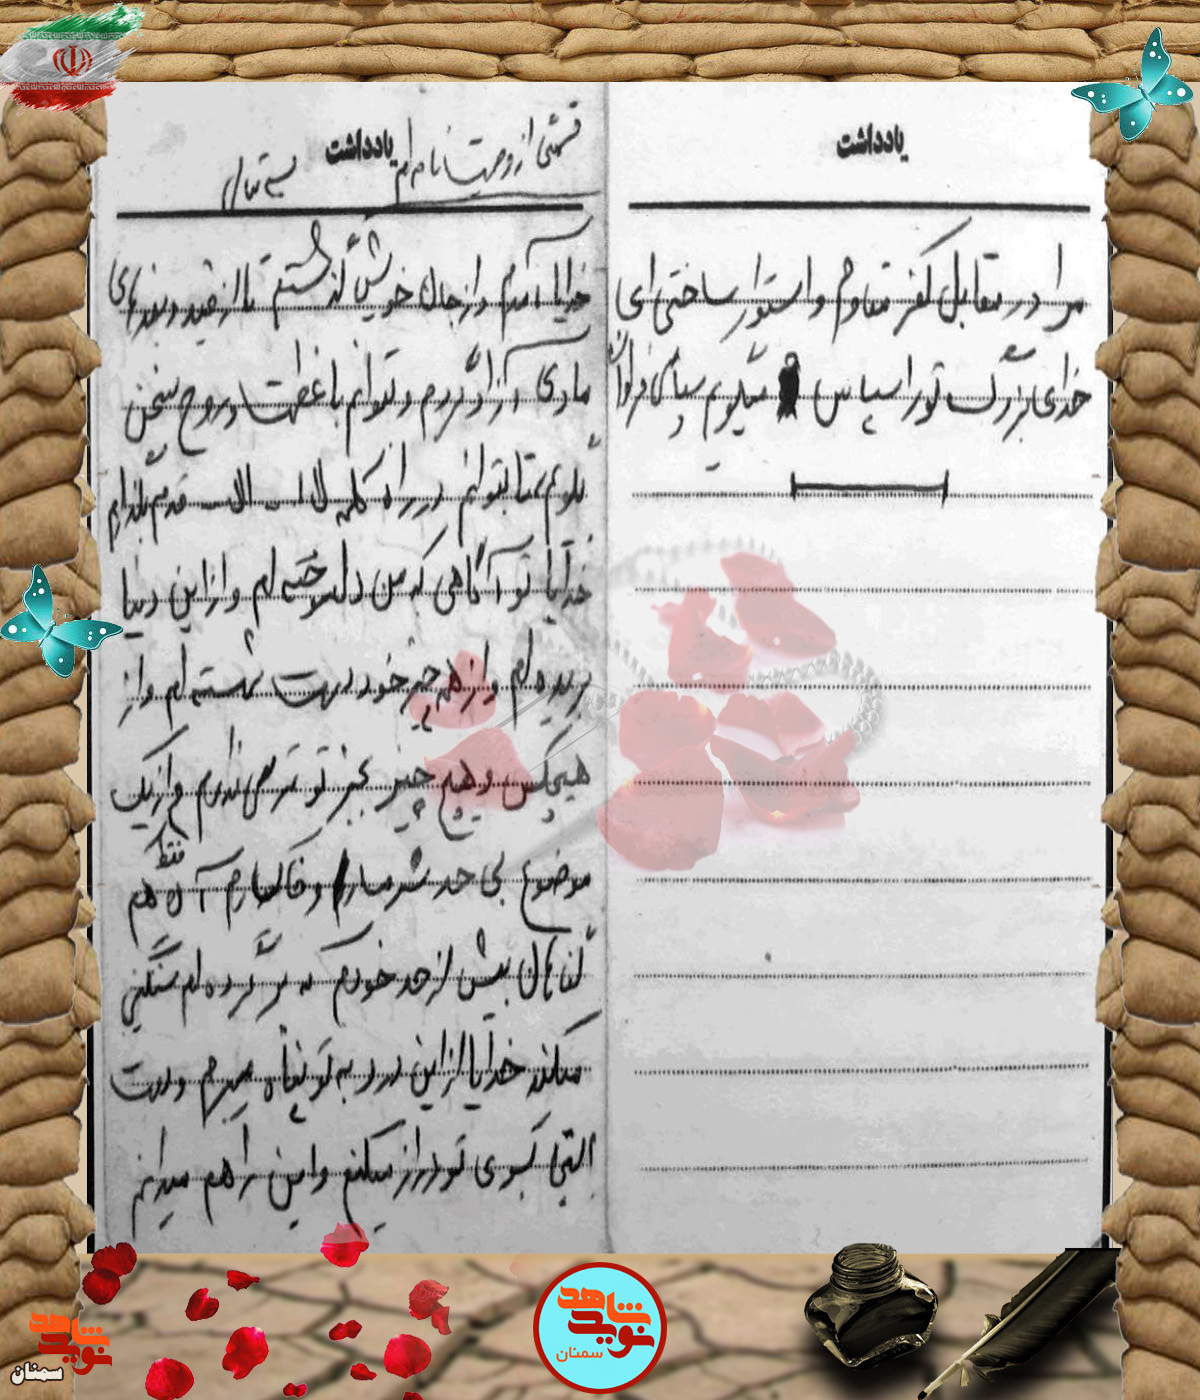 یادداشت
مرا در مقابل کفر مقاوم و استوار ساخته‌ای
خدای بزرگ تو را سپاس میگویم سپاس فراوان
یادداشت
قسمتی از وصیت نامه ام
بسمه تعالی
خدایا آمدم و از جان خویش گذشتم تا از قید و بندهای
مادی آزاد گردم و بتوانم با عظمت روح سخن
بگویم، تا بتوانم در راه کلمه لا اله الا الله قدم بگذارم
خدایا تو آگاهی که من دلسوخته ام و از این دنیا
بریده ام و از همه چیز خود دست شسته ام و از
هیچکس و هیچ چیز بجز تو ترسی ندارم و از یک
موضوع بی حد شرمسارم و خاکسارم آن هم فقط
گناهان بیش از حد خودم که بر گرده ام سنگینی
میکند خدایا از این درد به تو پناه میبرم و دست
التجا بسوی تو دراز میکنم و این را هم میدانم
شاهد
نوید
سمنان
شاهد
نوید
سمنان